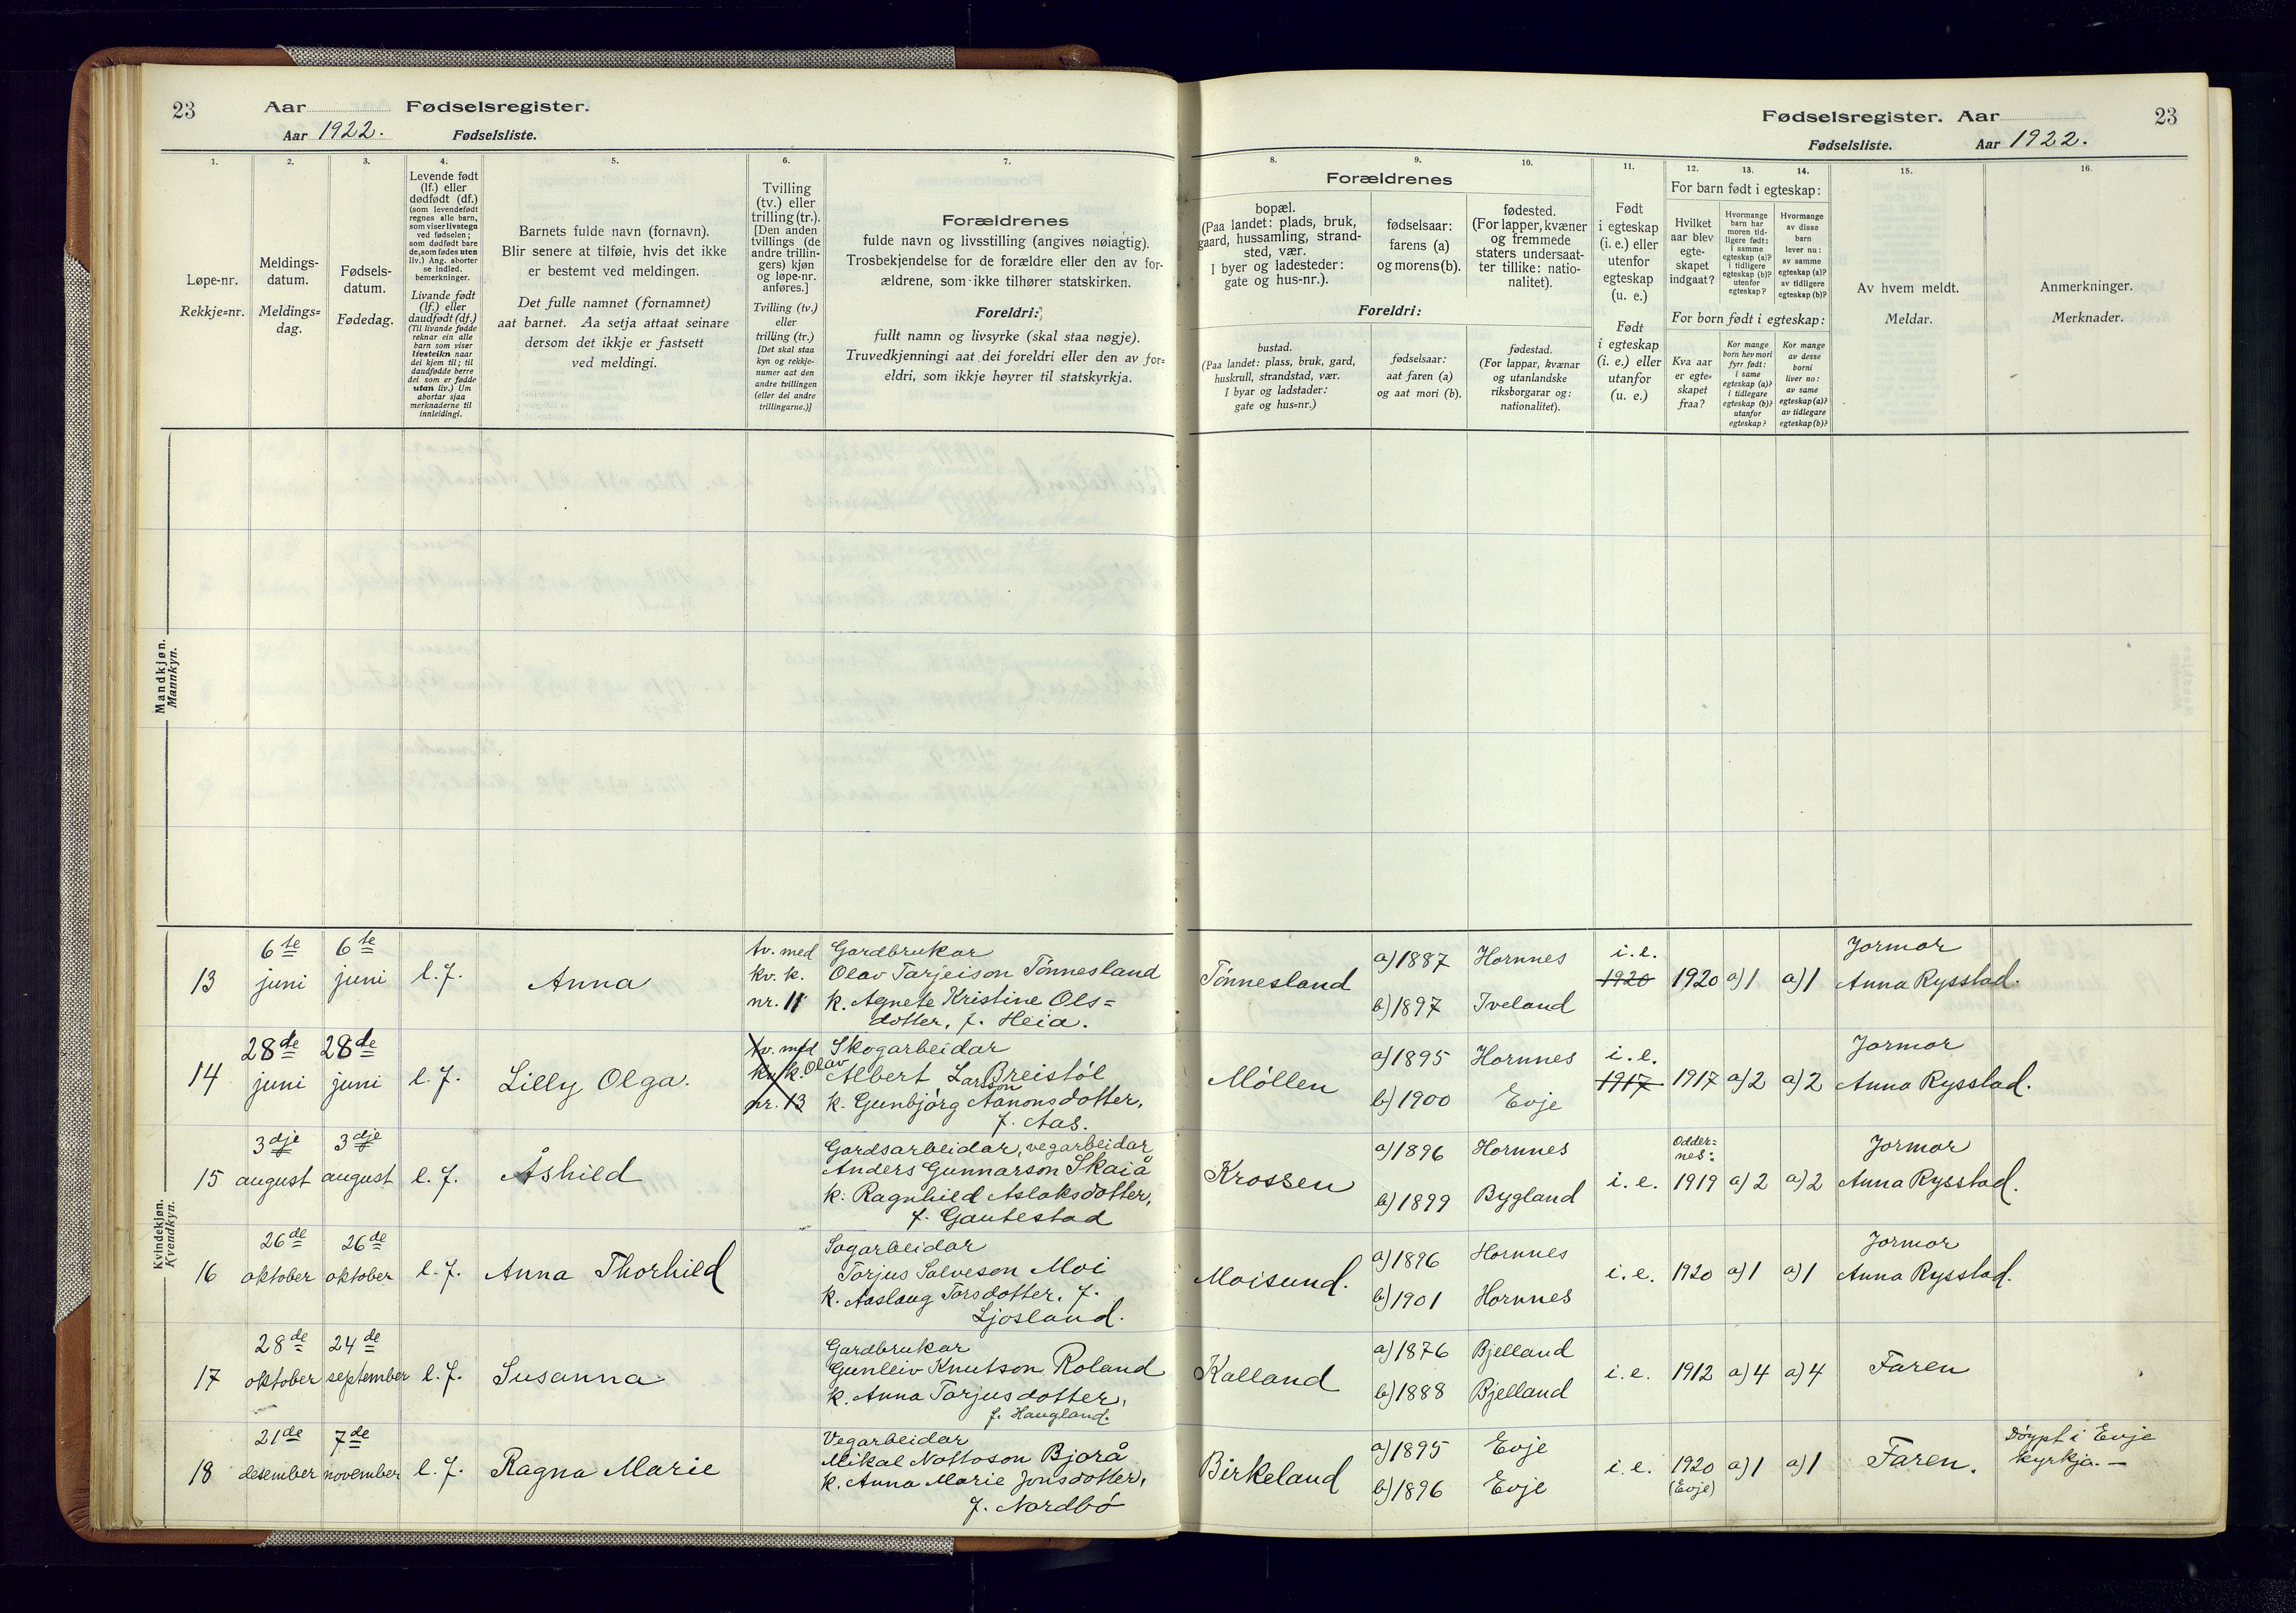 23 Aar Fødselsregister.
Aar 1922. Fødselsliste.
Fødselsregister. Aar 23
Fødselsliste. Aar 1922.
1. 2. 3. 4. 5. 6. 7.
8. 9. 10. 11. 12. 13. 14. 15. 16.
Løpe-nr.
Rekkje=nr.
Meldings-
datum.
Meldings=
dag.
Fødsels-
datum.
Fødedag.
Levende født
(lf.) eller
dødfødt (df.)
(som levendefødt
regnes alle barn,
som viser livstegn
ved fødselen;
som dødfødt bare
de, som fødes uten
liv.) Ang. aborter
se indled.
bemerkninger.
Livande født
(lf.) eller
daudfødt (df.)
(Til livande fødde
reknar ein alle
barn som viser
livsteikn naar
dei kjem til; til
daudfødde berre
dei som er fødde
utan liv.) Um
abortar sjaa
merknaderne til
innleidingi.
Barnets fulde navn (fornavn).
Blir senere at tilføie, hvis det ikke
er bestemt ved meldingen.
Det fulle namnet (fornamnet)
aat barnet. Aa setja attaat seinare
dersom det ikkje er fastsett
ved meldingi.
Tvilling
(tv.) eller
trilling (tr.).
[Den anden
tvillings (de
andre trillin-
gers) kjøn
og løpe-nr.
anføres.]
Tvilling (tv.)
eller
trilling (tr.)
[Det skal staa
kyn og rekkje-
numer aat den
andre tvillingen
(eller dei andre
trillingarne.)]
Forældrenes
fulde navn og livsstilling (angives nøiagtig).
Trosbekjendelse for de forældre eller den av for-
ældrene, som ikke tilhører statskirken.
Foreldri:
fullt namn og livsyrke (skal staa nøgje).
Truvedkjenningi aat dei foreldri eller den av for=
eldri, som ikkje høyrer til statskyrkja.
Forældrenes
bopæl.
(Paa landet: plads, bruk,
gaard, hussamling, strand-
sted, vær.
I byer og ladesteder:
gate og hus-nr.).
fødselsaar:
farens (a)
og morens (b).
fødested.
(For lapper, kvæner
og fremmede
staters undersaat-
ter tillike: natio-
nalitet).
Foreldri:
bustad.
(Paa landet: plass, bruk, gard,
huskrull, strandstad, vær.
I byar og ladstader:
gate og hus=nr.)
fødselsaar:
aat faren (a)
og aat mori (b).
fødestad.
(For lappar, kvænar
og utanlandske
riksborgarar og:
nationalitet).
Født
i egteskap
(i. e.) eller
utenfor
egteskap
(u. e.)
Født
i egteskap
(i. e.) eller
utanfor
(u. e.)
For barn født i egteskap:
Hvilket
aar blev
egte-
skapet
indgaat?
Hvormange
barn har
moren tid-
ligere født:
i samme
egteskap (a)?
i tidligere
egteskap (b)?
utenfor
egteskap?
Hvormange
av disse
barn
lever nu:
av samme
egteskap (a)?
av tidligere
egteskap (b)?
For born født i egteskap:
Kva aar
er egte=
skapet
fraa?
Kor mange
born hev mori
fyrr født:
i same
egteskap (a)?
i tidlegare
egteskap (b)?
utanfor
egteskap?
Kor mange
av desse
borni
liver no:
av same
egteskap (a)?
av tidlegare
egteskap (b)?
Av hvem meldt.
Meldar.
Anmerkninger.
Merknader.
Mandkjøn.
Mannkyn.
Kvindekjøn.
Kvendkyn.
13 6te juni 6te juni l. f. Anna
tv. med
kv. k.
nr. 11
Gardbrukar
Olav Tarjeison Tønnesland
k. Agnete Kristine Ols=
dotter, f. Heia.
Tønnesland a) 1887 Hornnes
b) 1897 Iveland
i. e.
1920
1920 a) 1 a) 1
Jormor
Anna Rysstad.
14 28de juni 28de juni l. f. Lilly Olga.
tv. med
kv. k.
nr. 13
Skogarbeidar
Olav
Albert Larsson Breistøl
k. Gunbjørg Aanonsdotter,
f. Aas.
Møllen a) 1895 Hornnes
b) 1900 Evje
i. e.
1917
1917 a) 2 a) 2
Jormor
Anna Rysstad.
15 3dje august 3dje august l. f. Åshild
Gardsarbeidar, vegarbeidar
Anders Gunnarson Skaiå
k. Ragnhild Aslaksdotter,
f. Gautestad
Krossen a) 1896 Hornnes
b) 1899 Bygland
i. e.
Odder=
nes:
1919 a) 2 a) 2
Jormor
Anna Rysstad.
16 26de oktober 26de oktober l. f. Anna Thorhild
Sagarbeidar
Torjus Salveson Moi
k. Aaslaug Torsdotter, f.
Ljosland.
Moisund. a) 1896 Hornnes
b) 1901 Hornnes
i. e. 1920 a) 1 a) 1
Jormor
Anna Rysstad.
17 28de oktober 24de september l. f. Susanna
Gardbrukar
Gunleiv Knutson Roland
k. Anna Tarjusdotter,
f. Haugland.
Kalland a) 1876 Bjelland
b) 1888 Bjelland
i. e. 1912 a) 4 a) 4 Faren
18 21de desember 7de november l. f. Ragna Marie
Vegarbeidar
Mikal Nottoson Bjorå
k. Anna Marie Jonsdotter,
f. Nordbø
Birkeland a) 1895 Evje
b) 1896 Evje
i. e. 1920
(Evje)
a) 1 a) 1 Faren.
Døypt i Evje
kyrkja. –